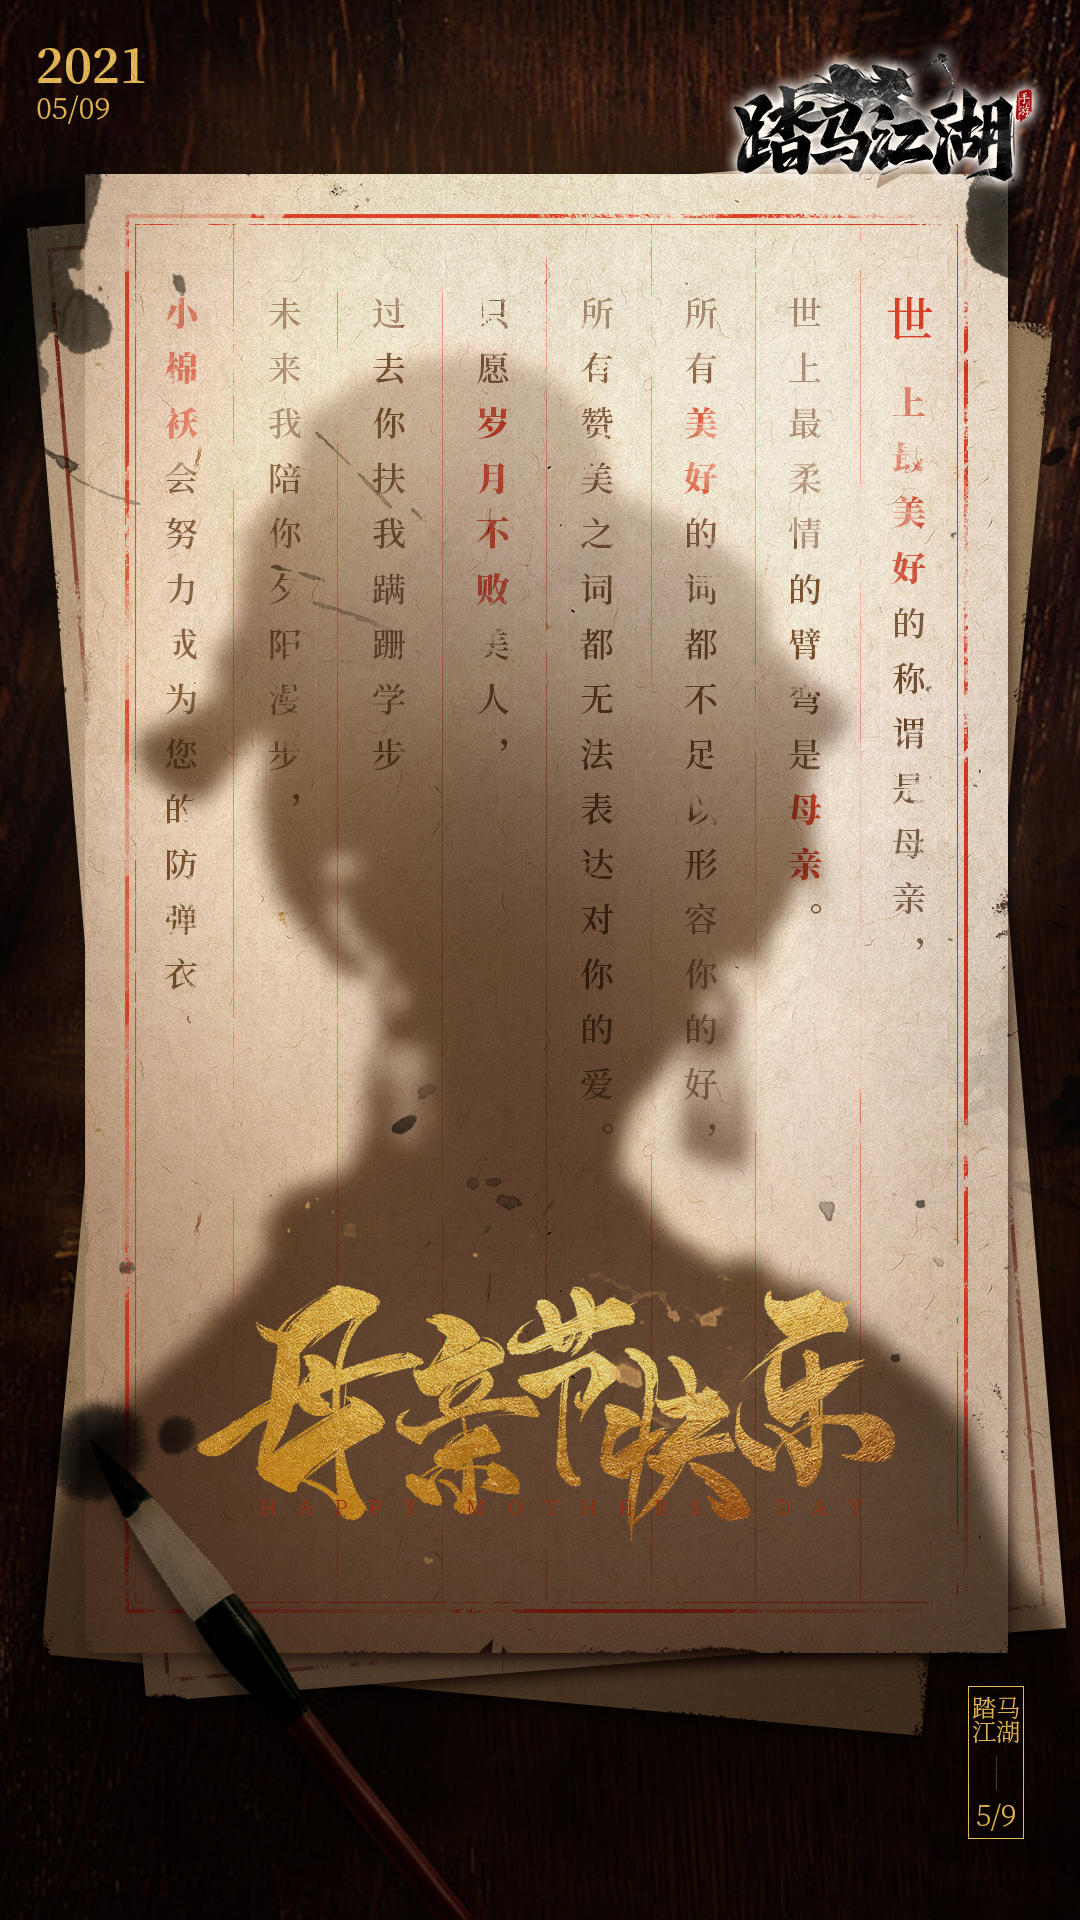 2021
05/09
踏马江湖
手游
世上最美好的称谓是母亲，
世上最柔情的臂弯是母亲。
所有美好的词都不足以形容你的好，
所有赞美之词都无法表达对你的爱。
只愿岁月不败美人，
过去你扶我蹒跚学步
未来我陪你夕阳漫步，
小棉袄会努力成为您的防弹衣、
母亲节快乐
HAPPY MOTHERS DAY
踏马
江湖
5/9